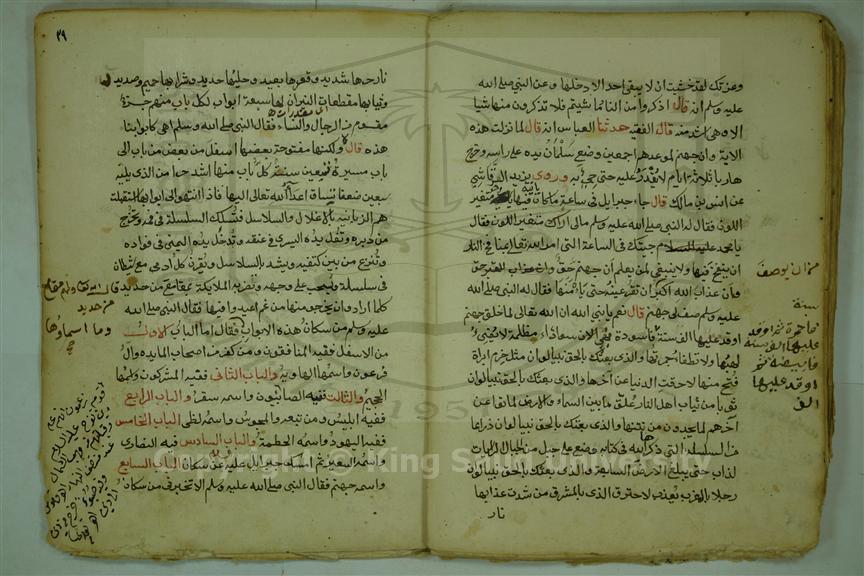 وعزتك لقد خشيت ان لا يبقى احد الا دخلها وعن النبي صلى الله
عليه وسلم انه قال اذكروا من النار ما شيتم فلا تذكرون منها شيا
الا وهي اشد منه قال الفقيه حدثنا العباس انه قال لما نزلت هذه
الاية وان جهنم لموعدهم اجمعين وضع سلمان يده على راسه وخرج
هاربا ثلاثة ايام لا يقدر عليه حتى جي به وروى يزيد الرقاشي
عن انس بن مالك قال جاء جبرايل في ساعة ما كان ياتيه فيها متغير
اللون فقال له النبي صلى الله عليه وسلم مالي اراك متغير اللون فقال
يا محمد جيتك في الساعة التي امر الله تعالى بمنافخ النار
ان ينفخ فيها ولا ينبغي لمن يعلم ان جهنم حق وان عذاب القبر حق
وان عذاب الله اكبر ان تقر عينه حتى يامنها فقال له النبي صلى الله
عليه وسلم صف لي جهنم قال نعم يا نبي الله ان الله تعالى لما خلق جهنم
اوقد عليها الف سنة فاسودت فهي الان سوداء مظلمة لا يضيء
لهبها ولا تطفا جمرتها والذي بعثك بالحق نبيا لو ان مثل خرم ابرة
فتح منها لاحرقت الدنيا عن اخرها والذي بعثك بالحق نبيا لو ان
ثوبا من ثياب اهل النار علق ما بين السماء والارض لماتوا عن
اخرهم لما يجدون من نتنها والذي بعثك بالحق نبيا لو ان ذراعا
من السلسلة التي ذكرها الله في كتابه وضع على جبل من الجبال
لذاب حتى يبلغ الارض السابعة والذي بعثك بالحق نبيا لو ان
رجلا بالمغرب يعذب لاحترق الذي بالمشرق من شدت عذابها
نار
سنة
فاحمرت ثم اوقد
عليها الف سنة
فابيضت ثم
اوقد عليها
الف
٣٩
نار حرها شديد وقعرها بعيد وحليها حديد وشرابها حميم وصديد
وثيابها مقطعات النيران لها سبعة ابواب لكل باب منهم جزء
مقسوم من الرجال والنساء فقال النبي صلى الله عليه وسلم اهي كابوابنا
هذه قال لا ولكنها مفتوحة بعضها اسفل من بعض من باب الى
باب مسيرة سبعين سنة كل باب منها اشد حرا من الذي يليه
سبعين ضعفا يساق اعداء الله تعالى اليها فاذا انتهوا الى ابوابها استقبلتهم
هم الزبانية بالاغلال والسلاسل فتسلك السلسلة في فمه وتخرج
من دبره وتغل يده اليسرى في عنقه وتدخل يده اليمنى في فواده
وتنزع من بين كتفيه ويشد بالسلاسل ويقرن كل ادمي مع شيطان
في سلسلة ويسحب على وجهه وتضربه الملايكة بمقامع من حديد
كلما ارادوا ان يخرجوا منها من غم اعيدوا فيها فقال النبي صلى الله
عليه وسلم من سكان هذه الابواب فقال اما الباب الاول
من الاسفل ففيه المنافقون ومن كفر من اصحاب المايدة وال
فرعون واسمها الهاوية والباب الثاني ففيه المشركون واسمها
الجحيم والثالث ففيه الصابيون واسمه سقر والباب الرابع
ففيه ابليس ومن تبعه والمجوس واسمه لظى الباب الخامس
ففيه اليهود واسمه الحطمة والباب السادس فيه النصارى
واسمه السعير ثم امسك جبرايل عليه عن سكان الباب السابع
واسمه جهنم فقال النبي صلى الله عليه وسلم الا تخبرني من سكان
من حديد
وما اسماوها
Copyright © King Saud University
1957